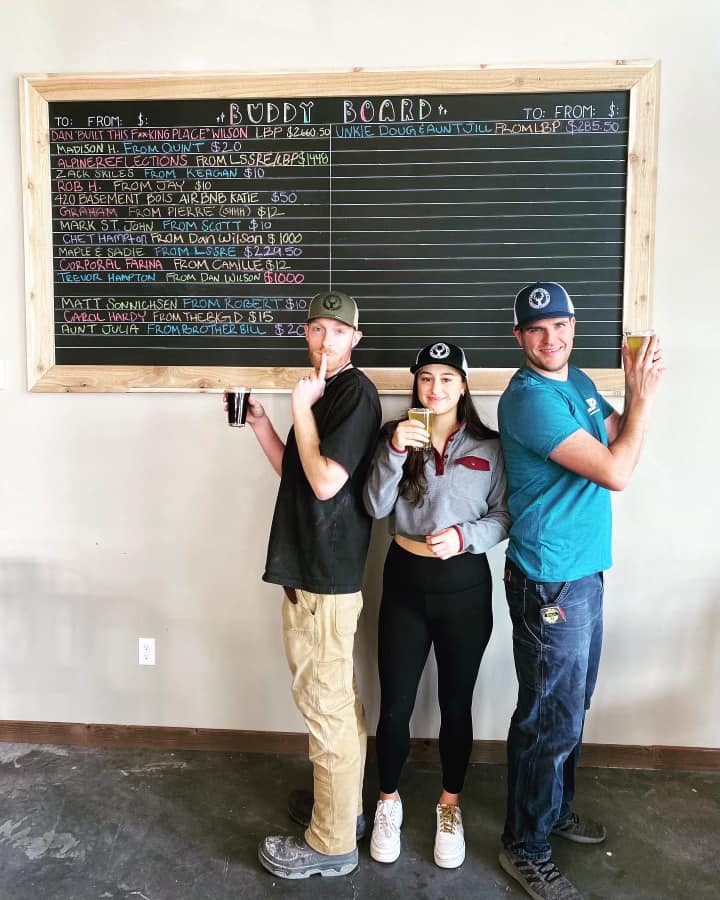 BUDDY BOARD
TO: FROM: $:
DAN "BUILT THIS F**KING PLACE" WILSON LBP $2660.50
MADISON H. FROM QUINT $20
ALPINEREFLECTIONS FROM LSSRE/LBP $1448
ZACK SKILES FROM KEAGAN $10
ROB H. FROM JAY $10
420 BASEMENT BOIS AIRBNB KATIE $50
GRAHAM FROM PIERRE (SHHH) $12
MARK ST. JOHN FROM SCOTT $10
CHET HAMPTON FROM DAN WILSON $1000
MAPLE & SADIE FROM LSSRE $229.50
CORPORAL FARINA FROM CAMILLE $12
TREVOR HAMPTON FROM DAN WILSON $1000
MATT SONNICHSEN FROM ROBERT $10
CAROL HARDY FROM THE BIG D $15
AUNT JULIA FROM BROTHER BILL $20
TO: FROM: $:
UNKIE DOUG & AUNT JILL FROM LBP $285.50